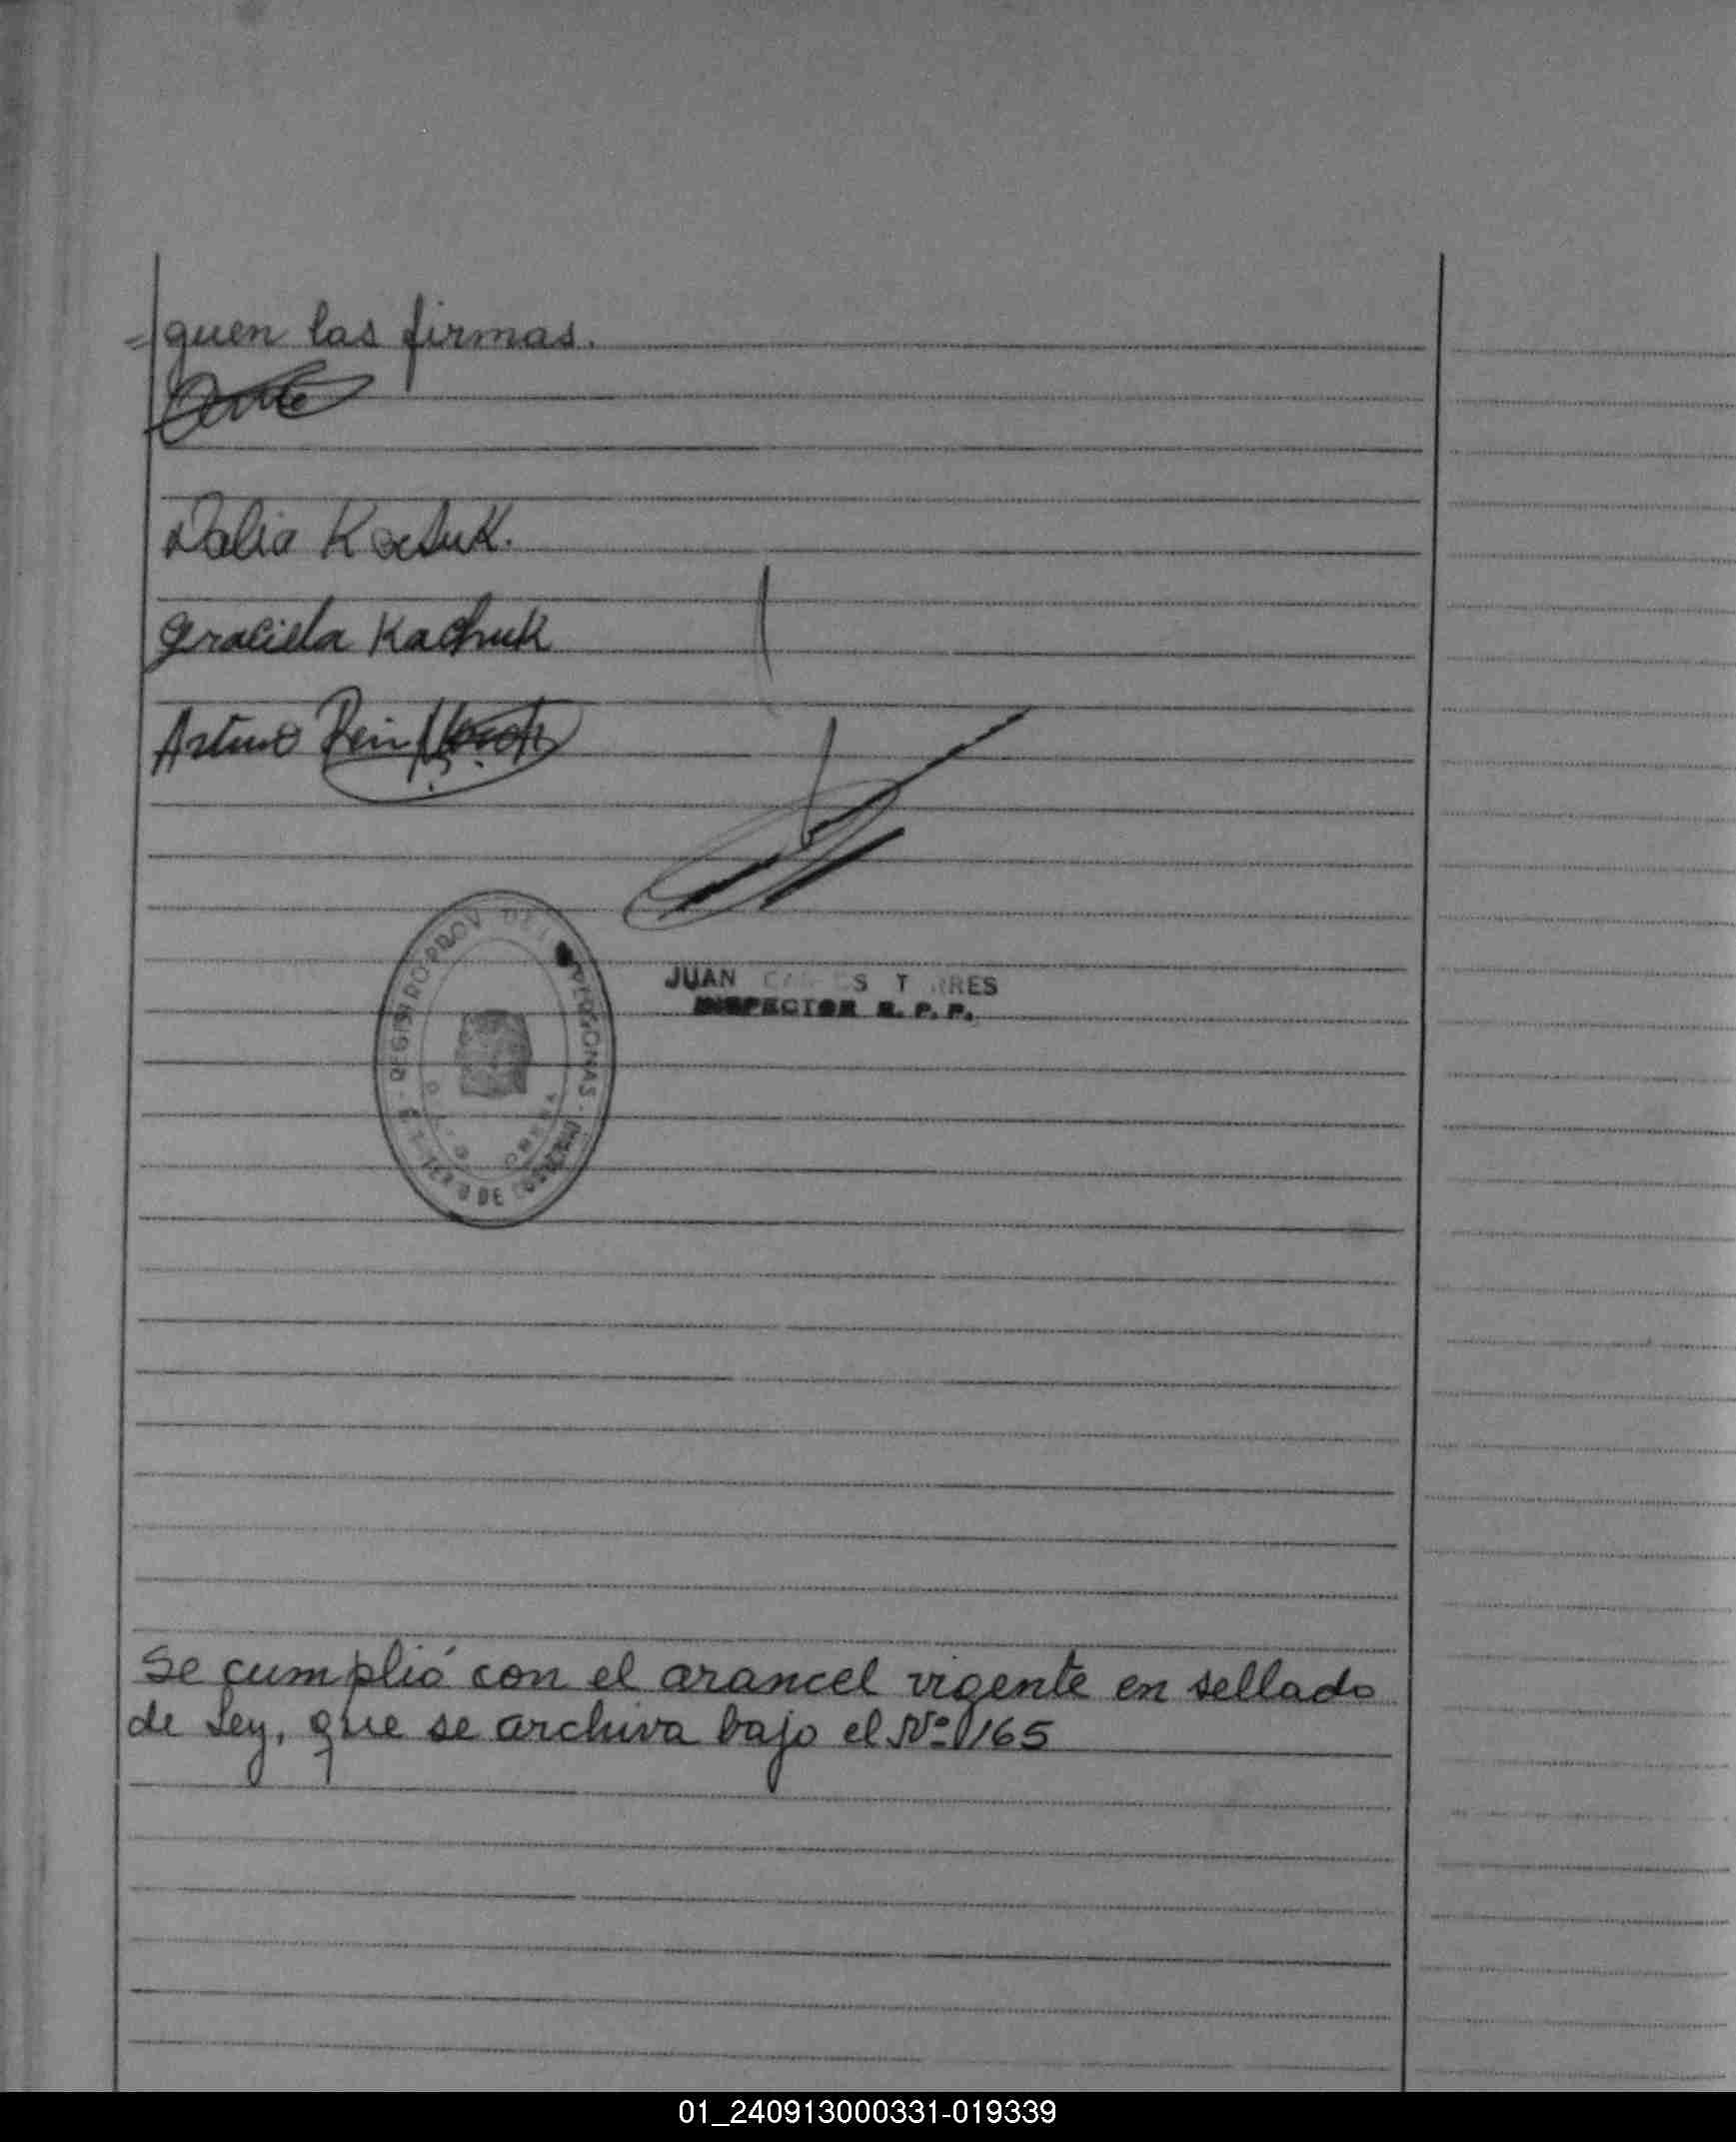 =guen las firmas.
Dalia Kachuk.
Graciela Kachuk
Arturo
REGISTRO PROV. DE PERSONAS
JUAN
INSPECTOR R. P. P.
Se cumplió con el arancel vigente en sellado
de Ley, que se archiva bajo el Nº 1165
01_240913000331-019339